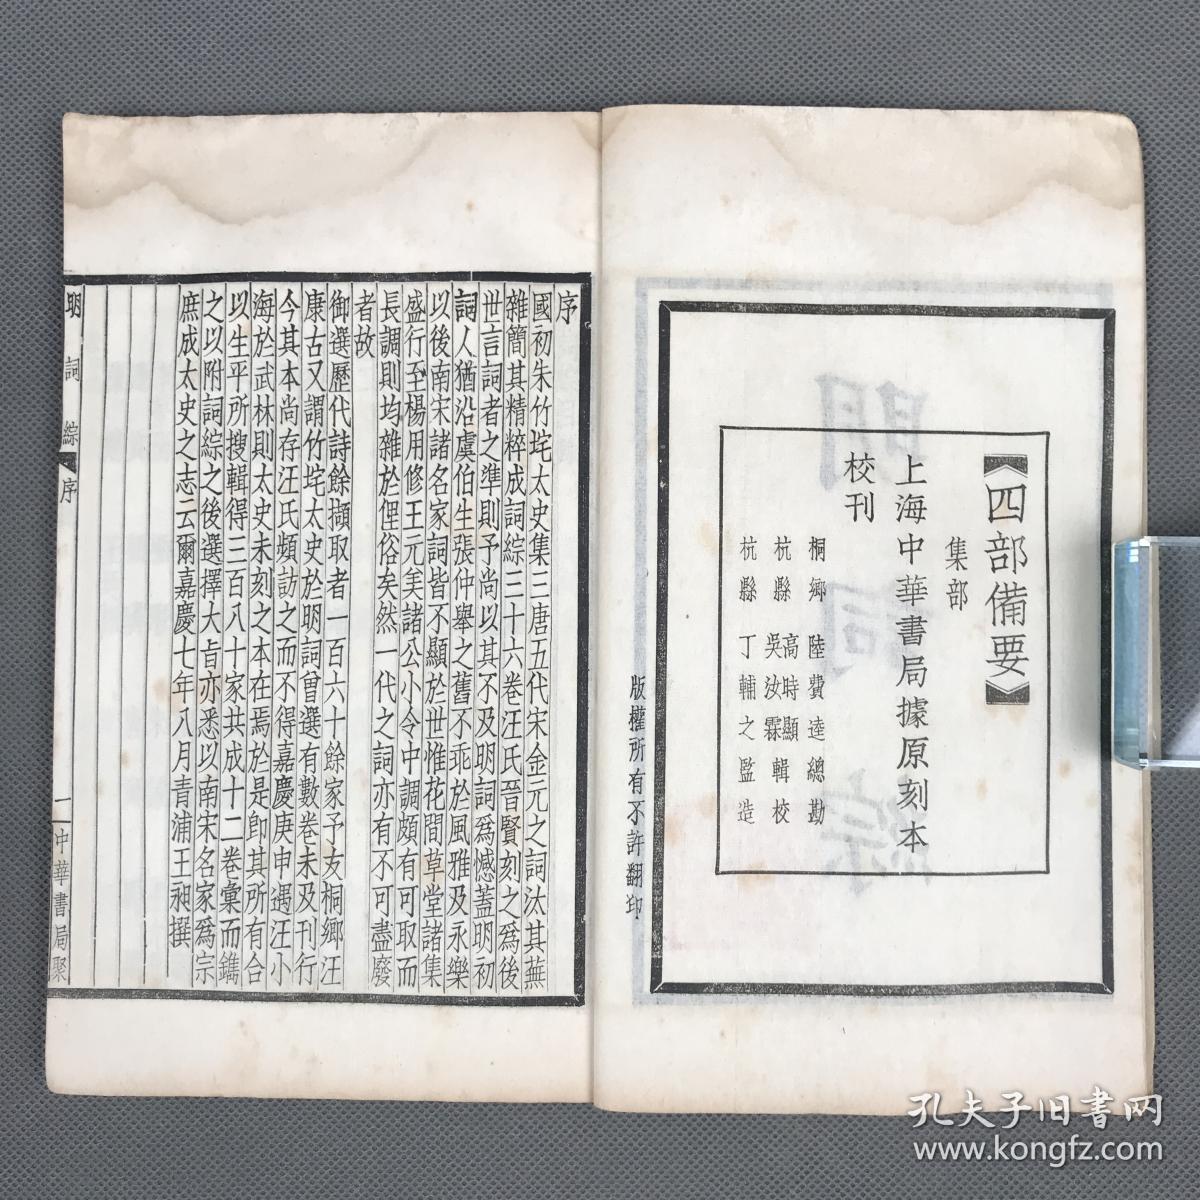 四部備要
集部
上海中華書局據原刻本
校刊
桐鄉 陸費逵總勘
杭縣 高時顯 吳汝霖 輯校
杭縣 丁輔之監造
版權所有不許翻印
明詞綜
序
國初朱竹垞太史集三唐五代宋金元之詞汰其蕪
雜簡其精粹成詞綜三十六卷汪氏晉賢刻之爲後
世言詞者之準則予尚以其不及明詞爲憾蓋明初
詞人猶沿虞伯生張仲舉之舊不乖於風雅及永樂
以後南宋諸名家詞皆不顯於世惟花間草堂諸集
盛行至楊用修王元美諸公小令中調頗有可取而
長調則均雜於俚俗矣然一代之詞亦有不可盡廢
者故
御選歷代詩餘擷取者一百六十餘家予友桐鄉汪
康古又謂竹垞太史於明詞曾選有數卷未及刊行
今其本尚存汪氏頻訪之而不得嘉慶庚申遇汪小
海於武林則太史未刻之本在焉於是卽其所有合
以生平所搜輯得三百八十家共成十二卷彙而鐫
之以附詞綜之後選擇大旨亦悉以南宋名家爲宗
庶成太史之志云爾嘉慶七年八月青浦王昶撰
明詞綜 序
一 中華書局聚
孔夫子旧书网
www.kongfz.com